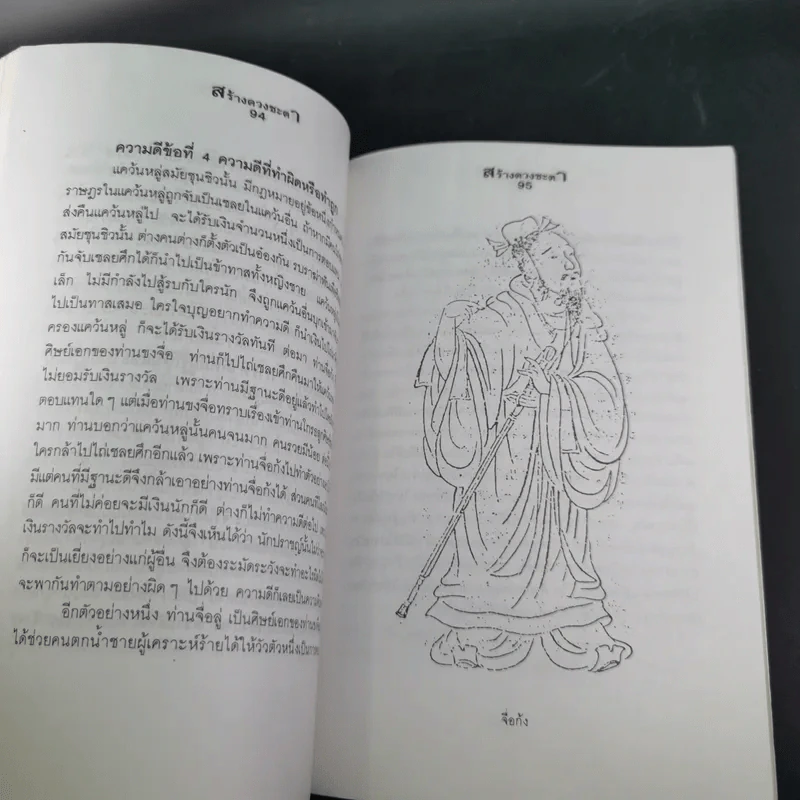 สร้างดวงชะตา
94
ความดีข้อที่ 4 ความดีที่ทำผิดหรือทำถูก
แคว้นหลู่สมัยชุนชิวนั้น มีกฎหมายอยู่ข้อหนึ่ง
ราษฎรในแคว้นหลู่ถูกจับเป็นเชลยในแคว้นอื่น ถ้าหาก
ส่งคืนแคว้นหลู่ไป จะได้รับเงินจำนวนหนึ่งเป็นการ
สมัยชุนชิวนั้น ต่างคนต่างก็ตั้งตัวเป็นอ๋องกัน รบราฆ่าฟัน
กันจับเชลยศึกได้ก็นำไปเป็นข้าทาสทั้งหญิงชาย
เล็ก ไม่มีกำลังไปสู้รบกับใครนัก จึงถูกแคว้นอื่นบุก
ไปเป็นทาสเสมอ ใครใจบุญอยากทำความดี ก็นำเงินไป
ครองแคว้นหลู่ ก็จะได้รับเงินรางวัลทันที ต่อมา
ศิษย์เอกของท่านขงจื่อ ท่านก็ไปไถ่เชลยศึกคืนมาให้
ไม่ยอมรับเงินรางวัล เพราะท่านมีฐานะดีอยู่แล้ว
ตอบแทนใดๆ แต่เมื่อท่านขงจื่อทราบเรื่องเข้าท่านโกรธ
มาก ท่านบอกว่าแคว้นหลู่นั้นคนจนมาก คนรวยมีน้อย
ใครกล้าไปไถ่เชลยศึกอีกแล้ว เพราะท่านจื่อก้งไปทำตัวอย่าง
มีแต่คนที่มีฐานะดีจึงกล้าเอาอย่างท่านจื่อก้งได้ ส่วนคนที่
ก็ดี คนที่ไม่ค่อยจะมีเงินนักก็ดี ต่างก็ไม่ทำความดีต่อไป
เงินรางวัลจะทำไปทำไม ดังนี้จึงเห็นได้ว่า นักปราชญ์นั้น
ก็จะเป็นเยี่ยงอย่างแก่ผู้อื่น จึงต้องระมัดระวังจะทำอะไร
จะพากันทำตามอย่างผิดๆ ไปด้วย ความดีก็เลยเป็น
อีกตัวอย่างหนึ่ง ท่านจื่อลู่ เป็นศิษย์เอกของท่าน
ได้ช่วยคนตกน้ำชายผู้เคราะห์ร้ายได้ให้วัวตัวหนึ่งเป็น
สร้างดวงชะตา
95
จื่อก้ง